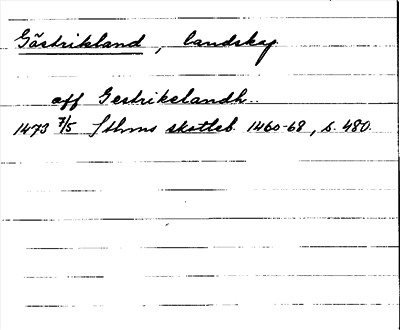 Gästrikland, landskap
aff Gestrikelandh..
1473 7/5 Sthms skotteb. 1460-68, s. 480.